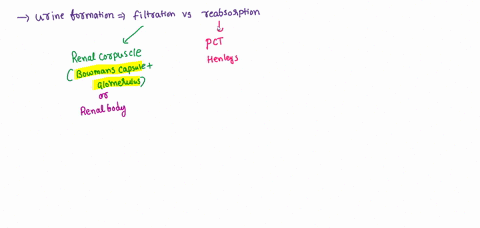 → Urine formation ⇒ filtration vs reabsorption
Renal corpuscle
(Bowmans capsule +
glomerulus)
or
Renal body
PCT
Henlegs